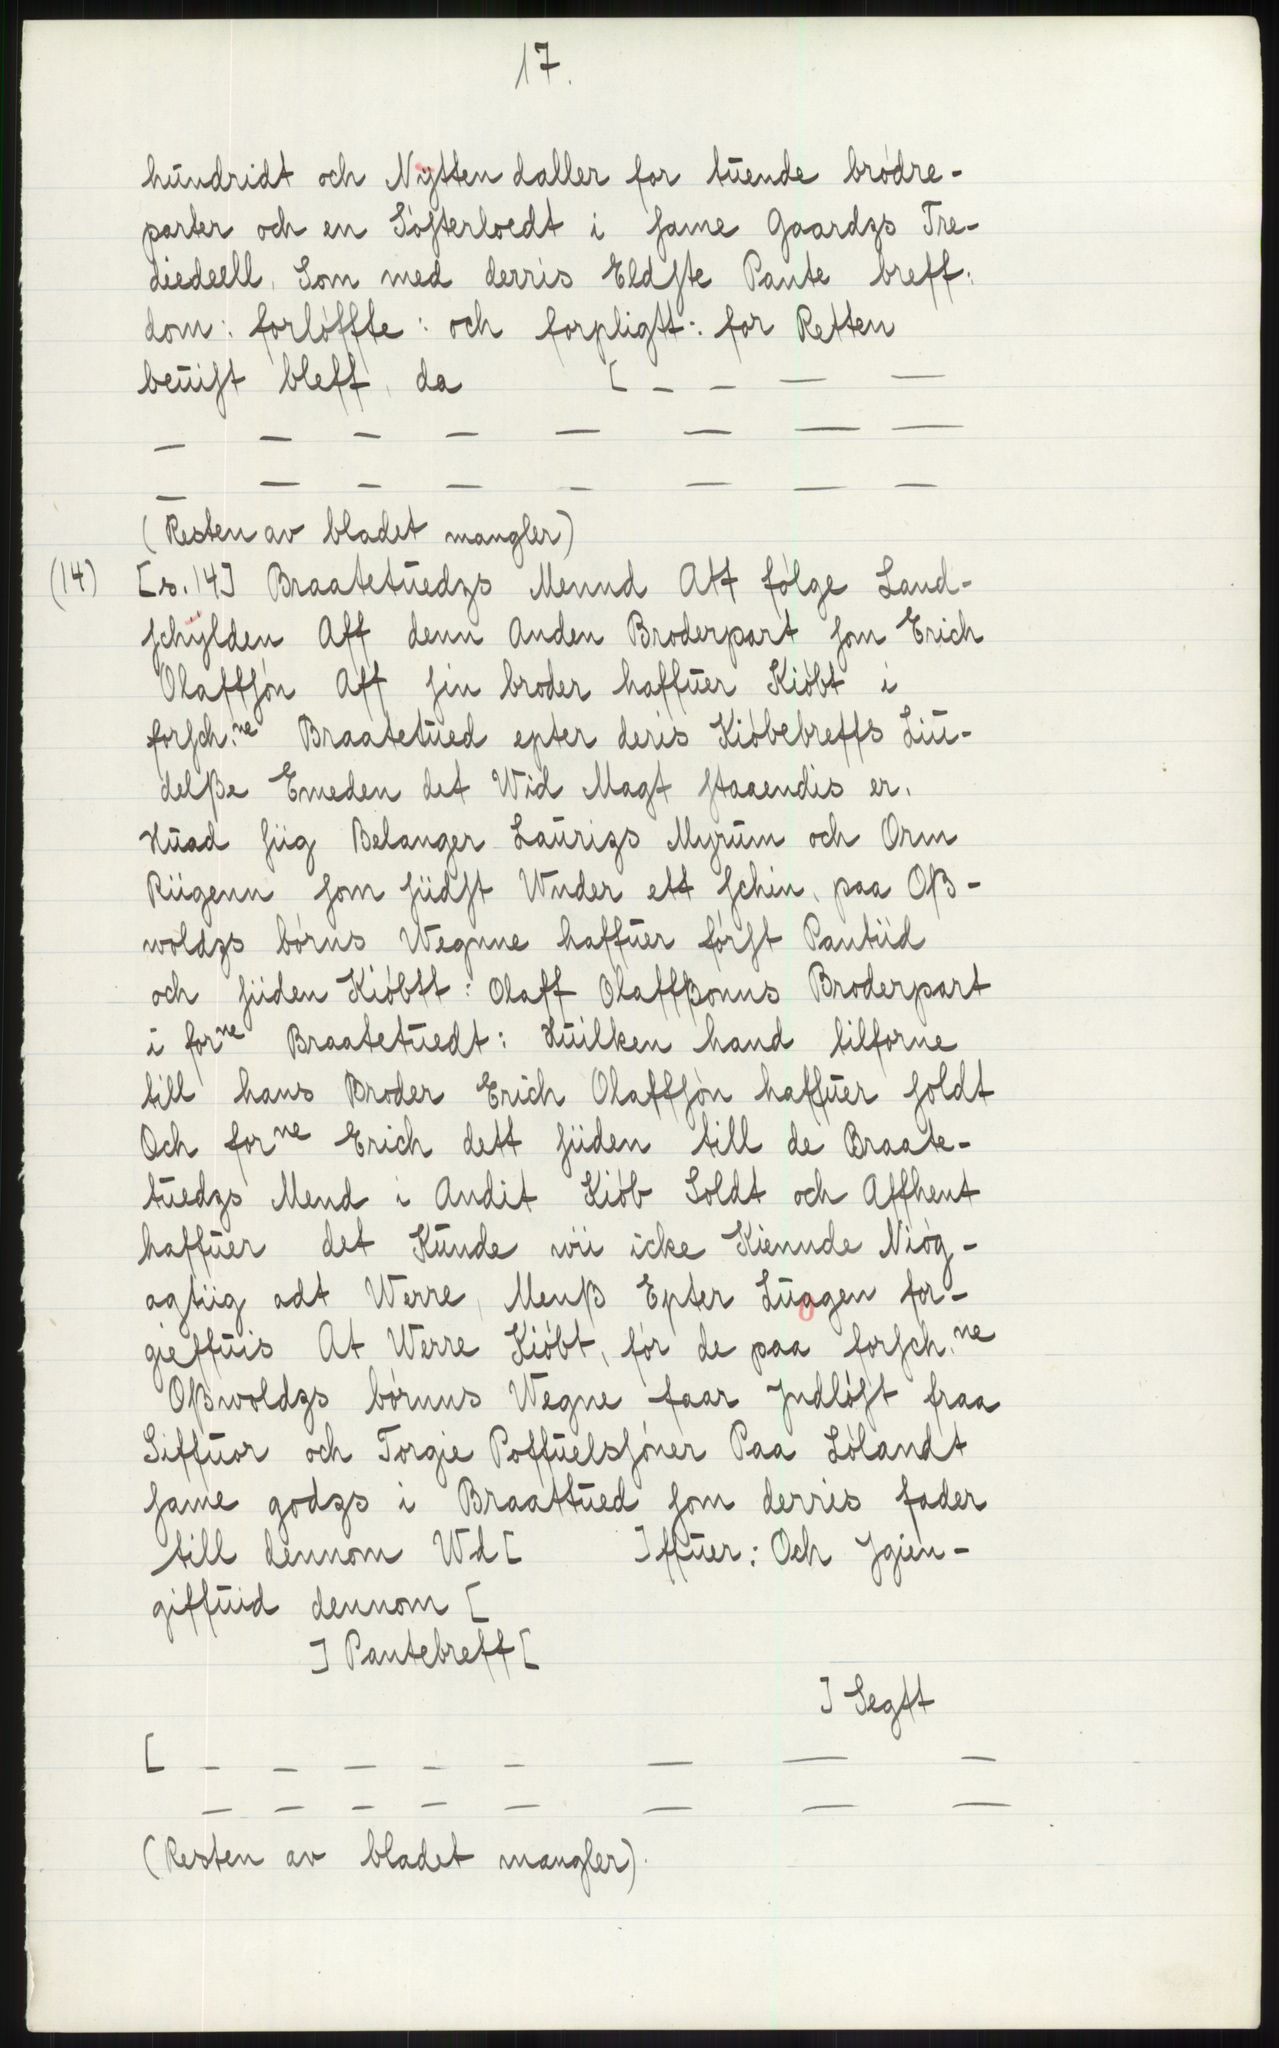 17.
hundridt och Nÿtten daller for tuende brödre-
parter och en Söfterloedt i same Gaardzs Tre-
diedeell, Som med derris Eldste Pante breff:
dom: forlöffte: och forpligtt: for Retten
beuist bleff, da [ _ _ _ _
_ _ _ _ _ _ _ _
_ _ _ _ _ _ _ _
(Resten av bladet mangler)
(14) [s. 14] Braatetuedzs Mennd Att følge Land-
schÿlden Aff denn Anden Broderpart som Erich
Olaffsön Aff sin broder haffuer Kiöbt i
forsch:ne Braatetued epter deris Kiöbebreffs Liu-
delße Emeden det Wid Magt staaendis er.
Huad siig Belanger Laurizs Myrum och Orm
Riigenn som siidst Wnder ett schin, paa Oß-
woldzs börns Wegnne haffuer först Pantiid
och siiden Kiöbtt: Olaff Olaffßonns Broderpart
i forne Braatetuedt: Huilken hand tilforne
till hans Broder Erich Olaffsön haffuer soldt
Och forne Erich dett siiden till de Braate-
tuedzs Mend i Andit Kiöb Soldt och Affhent
haffuer det Kunde wii icke Kiennde Niög-
agtiig adt Werre, Menß Epter Luagen for-
gieffuis At Werre Kiöbt, för de paa forsch:ne
Oßwoldzs börnns Wegne faar Jndlöst fraa
Siffuor och Torgie Poffuelssöner Paa Lölandt
same godzs i Braattued som derris fader
till dennom Wd [ ] ffuer: Och Jgien-
giffuid dennom [
] Pantebreff [
] Segtt
[ _ _ _ _ _ _ _ _
_ _ _ _ _ _ _ _
(Resten av bladet mangler).